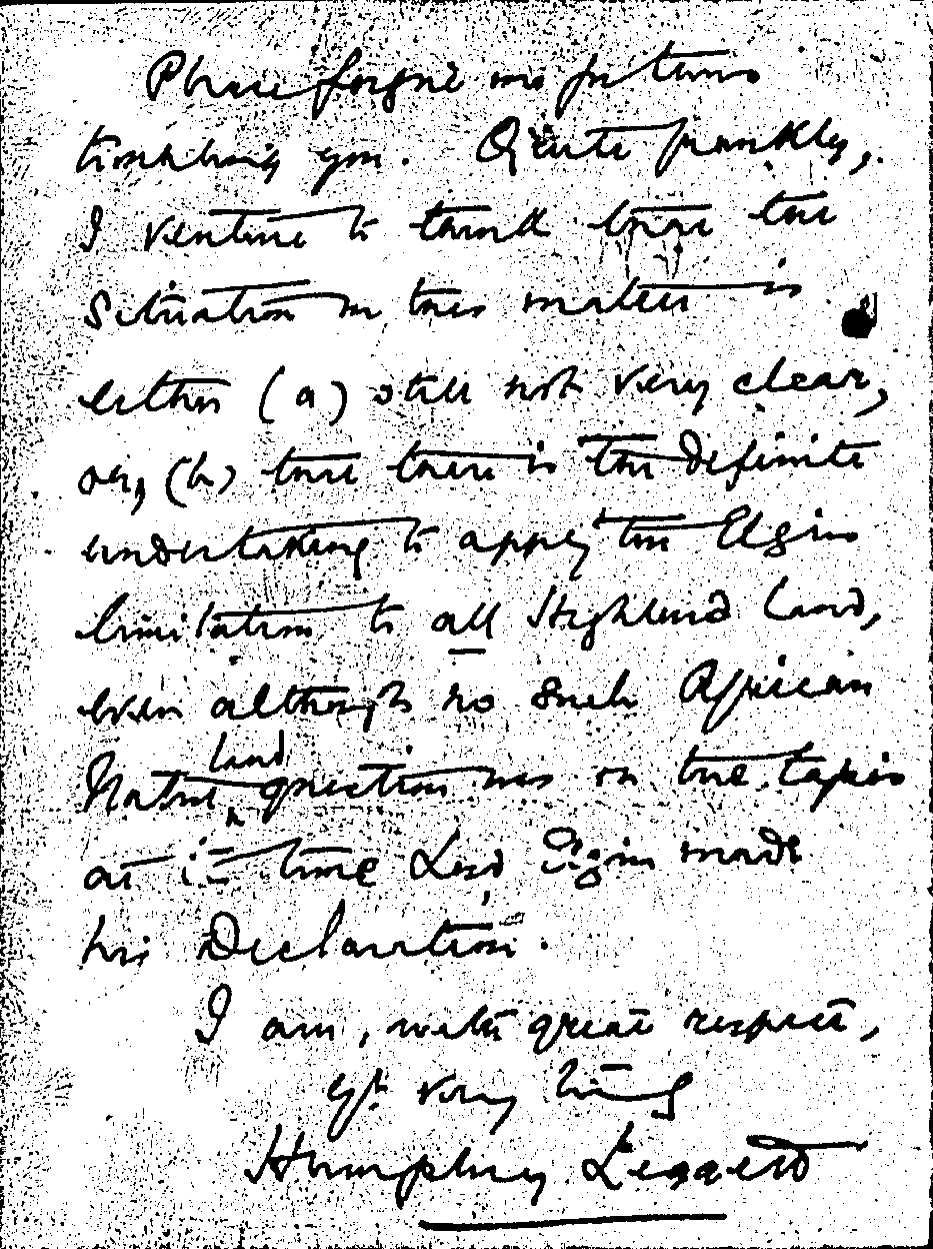 Please forgive me for thus
troubling you. Quite frankly,
I venture to think that the
situation in this matter is
either (a) still not very clear,
or, (b) that there is the definite
undertaking to apply the Elgin
limitation to all Highland land,
even although no such African
Native land question was on the tapis
at the time Lord Elgin made
his Declaration.
I am, with great respect,
Yrs. very
Humphrey Leggett